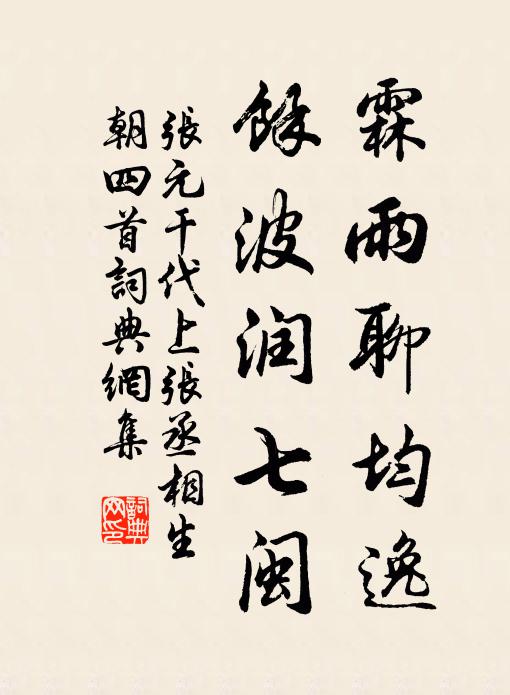 霖雨聊均逸
餘波润七闽
張元干代上張丞相生
朝四首詞典網集
詞典
网印